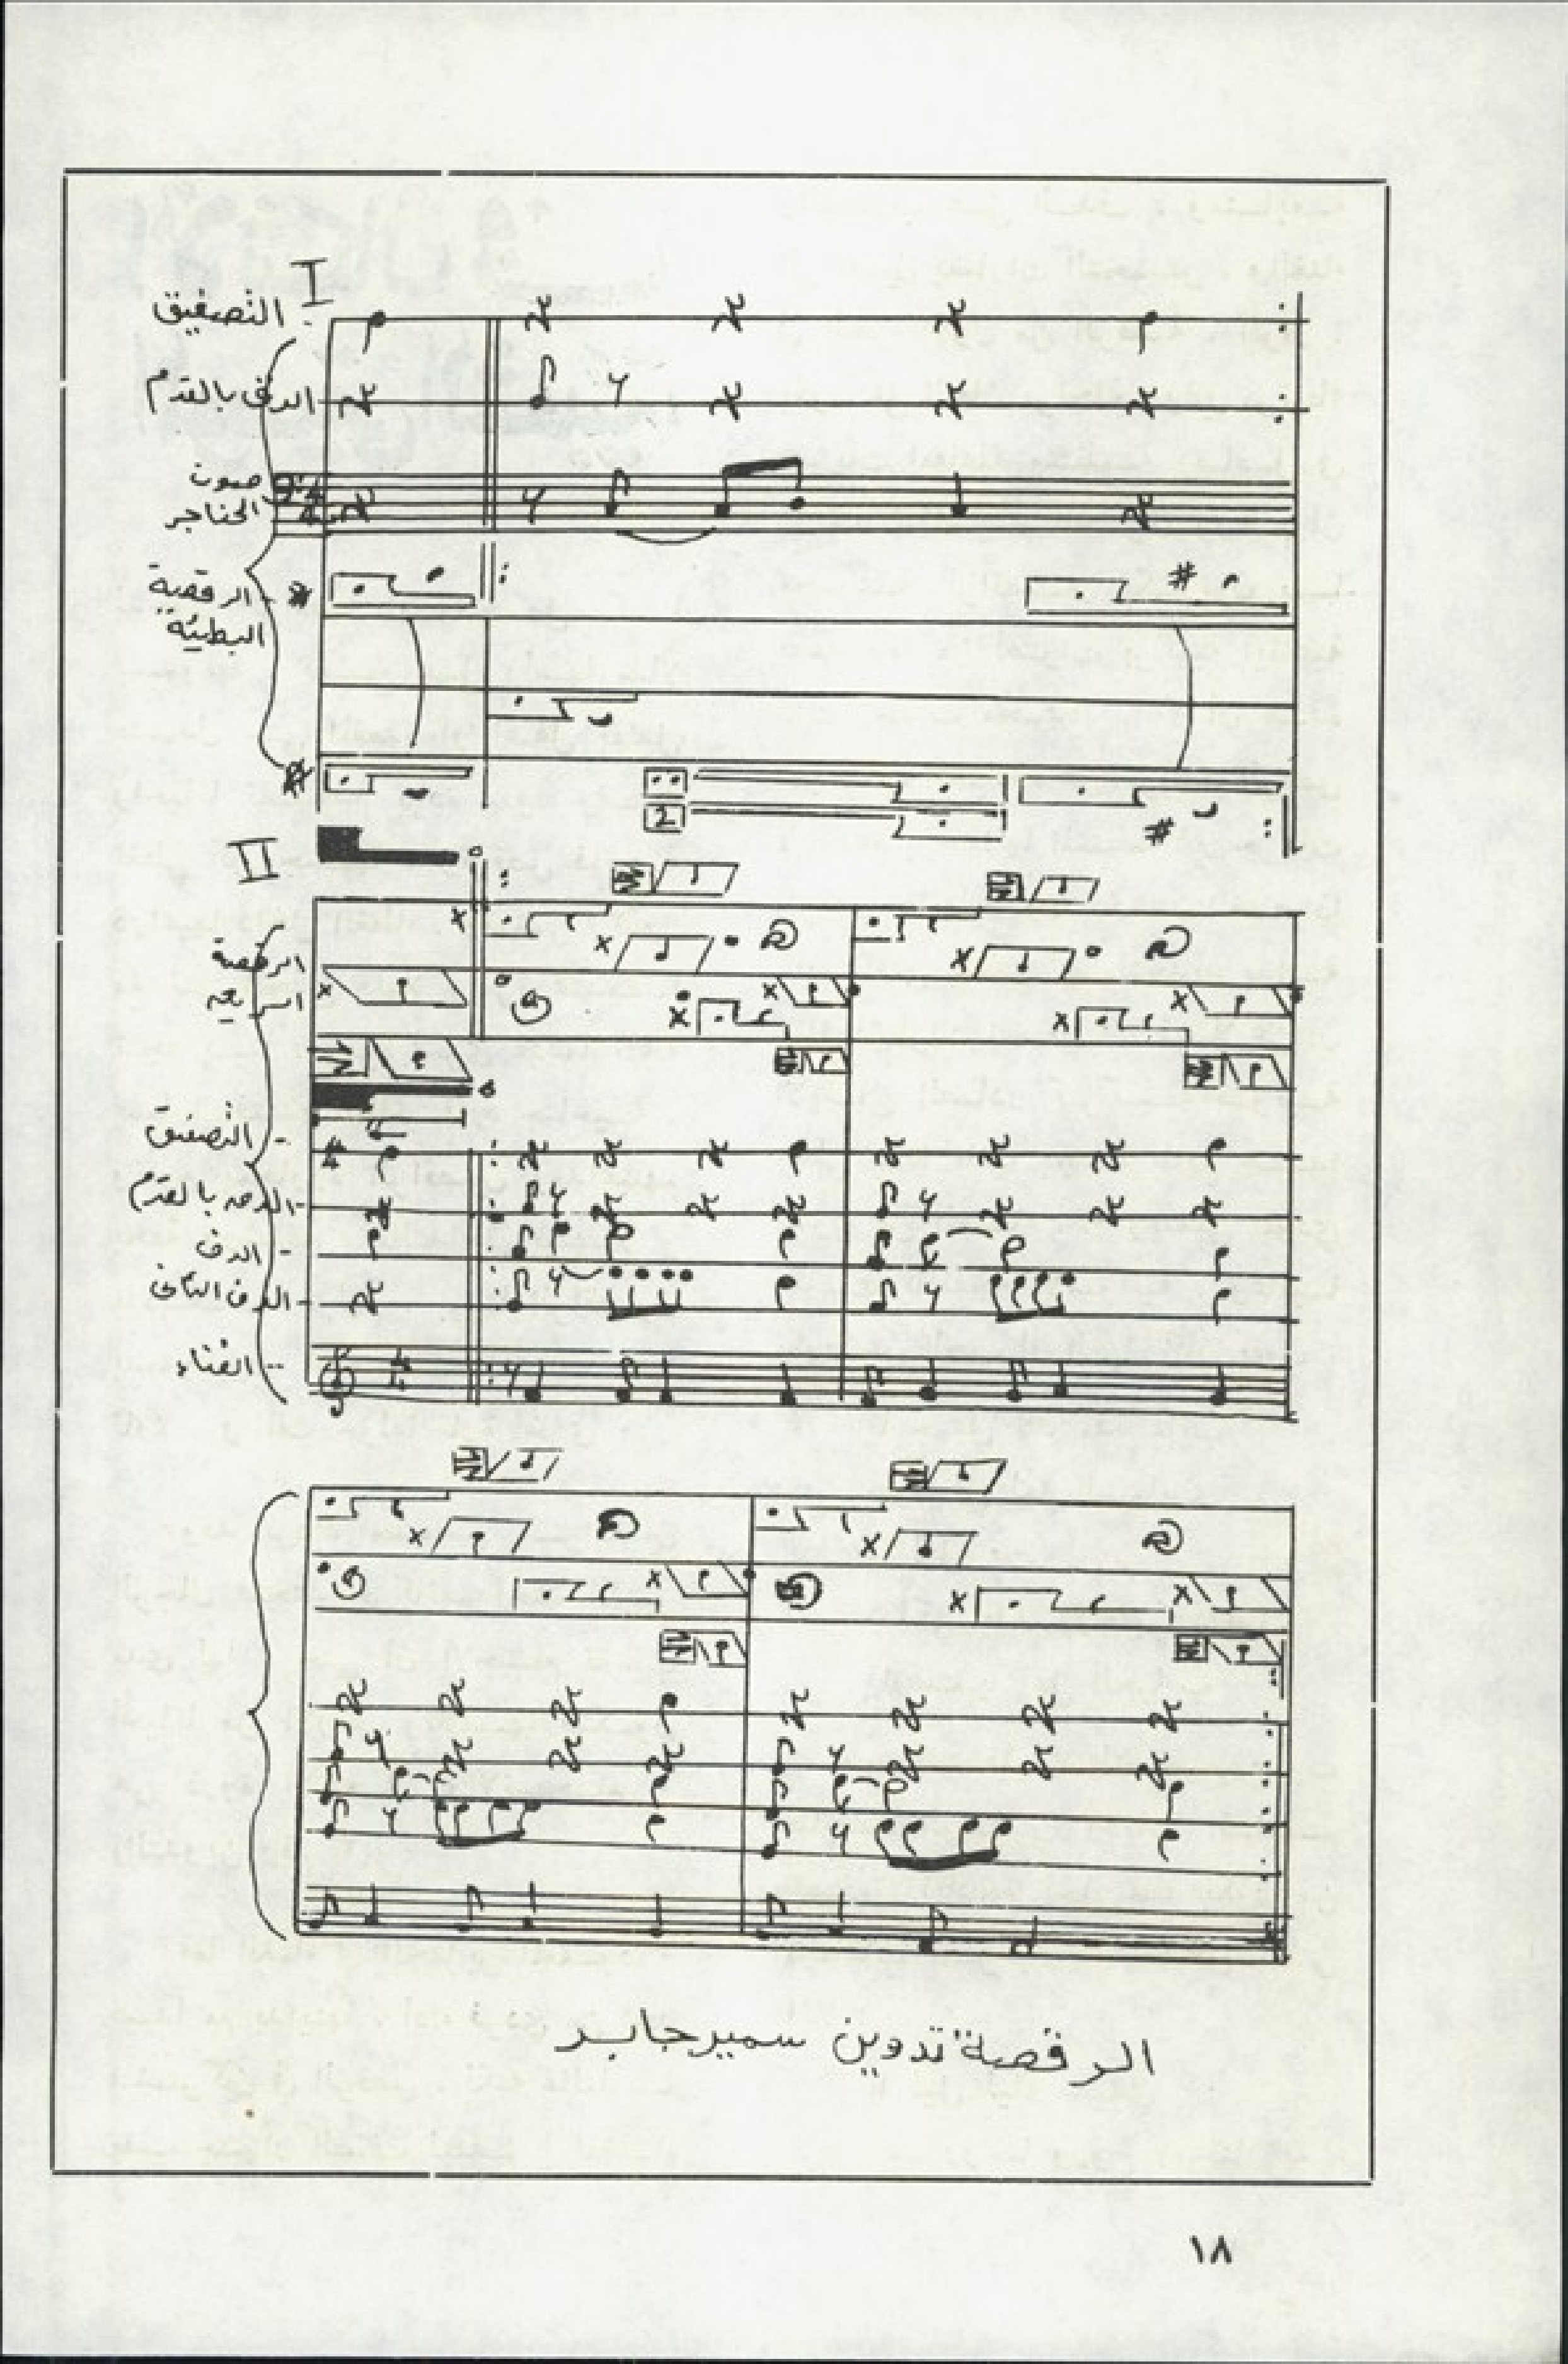 I
التصفيق
الدق بالقدم
صوت
الحناجر
الرقصة
البطيئة
2
II
الرقصة
السريعة
التصفيق
الدق بالقدم
الدف
الدف الثانى
الغناء
الرقصة تدوين سمير جابر
١٨